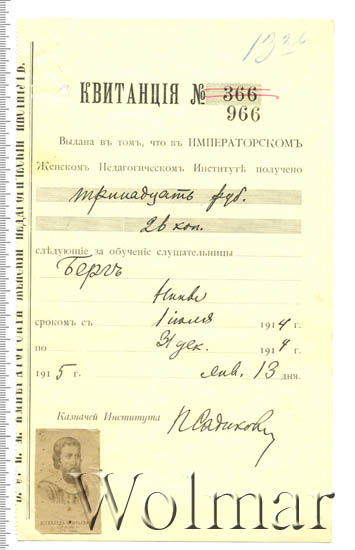 13 26
КВИТАНЦІЯ № 366
966
Выдана въ томъ, что въ ИМПЕРАТОРСКОМЪ
Женскомъ Педагогическомъ Институтѣ получено
тринадцать руб.
26 коп.
слѣдующіе за обученіе слушательницы
Бергъ
срокомъ съ 1 іюля 1914 г.
по 31 дек. 1914 г.
1915 г. янв. 13 дня.
Казначей Института
Wolmar